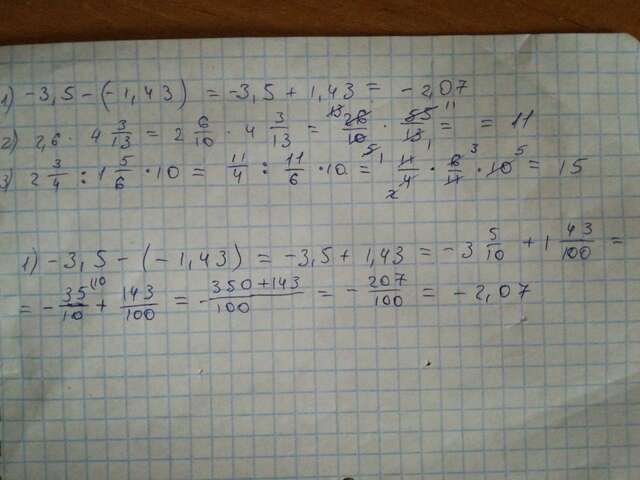 1) -3,5 - (-1,43) = -3,5 + 1,43 = -2,07
2) 2,6 · 4 3/13 = 2 6/10 · 4 3/13 = 26/10 · 55/13 = = 11
3) 2 3/4 : 1 5/6 · 10 = 11/4 : 11/6 · 10 = 11/4 · 6/11 · 10 = 15
1) -3,5 - (-1,43) = -3,5 + 1,43 = -3 5/10 + 1 43/100 =
= -35/10 + 143/100 = -350+143/100 = -207/100 = -2,07